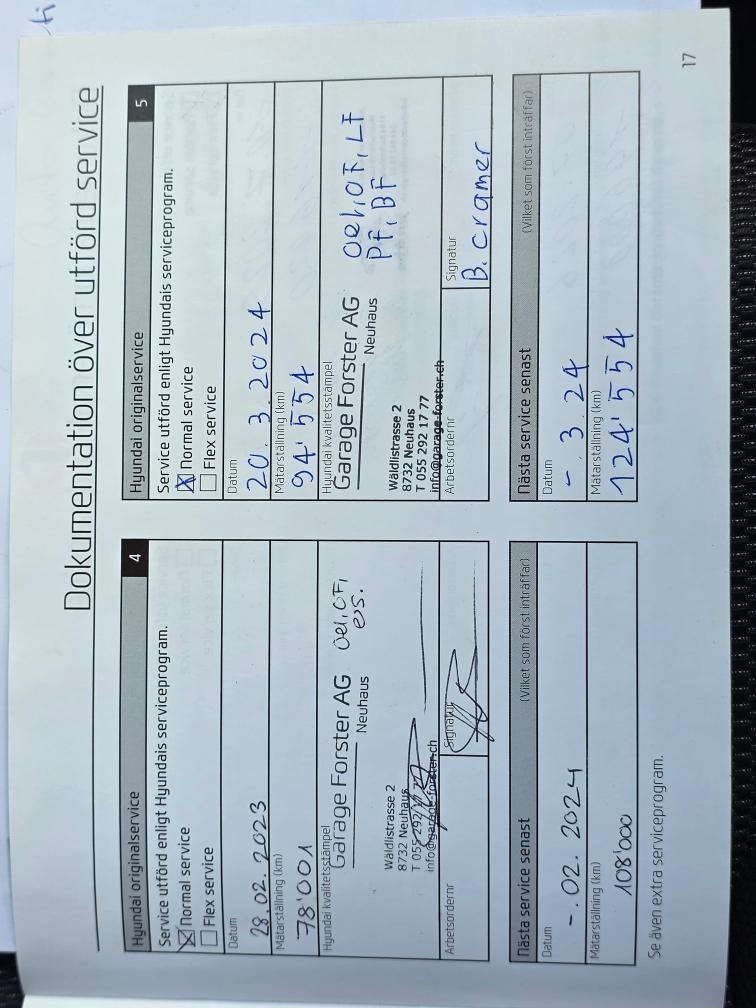 Dokumentation över utförd service
Hyundai originalservice 4
Service utförd enligt Hyundais serviceprogram.
Normal service
Flex service
Datum
28.02.2023
Mätarställning (km)
78'001
Hyundai kvalitetsstämpel
Garage Forster AG
Neuhaus
oel, OF,
Wäldlistrasse 2
8732 Neuhaus
T 055 292
info@garage-forster.ch
Arbetsordernr
Signatur
Nästa service senast (Vilket som först inträffar)
Datum
-.02.2024
Mätarställning (km)
108'000
Se även extra serviceprogram.
Hyundai originalservice 5
Service utförd enligt Hyundais serviceprogram.
Normal service
Flex service
Datum
20.3.2024
Mätarställning (km)
94'554
Hyundai kvalitetsstämpel
Garage Forster AG
Neuhaus
oel, OF, LF
PF, BF
Wäldlistrasse 2
8732 Neuhaus
T 055 292 17 77
info@garage-forster.ch
Arbetsordernr
Signatur
B. Cramer
Nästa service senast (Vilket som först inträffar)
Datum
-.3.24
Mätarställning (km)
124'554
17